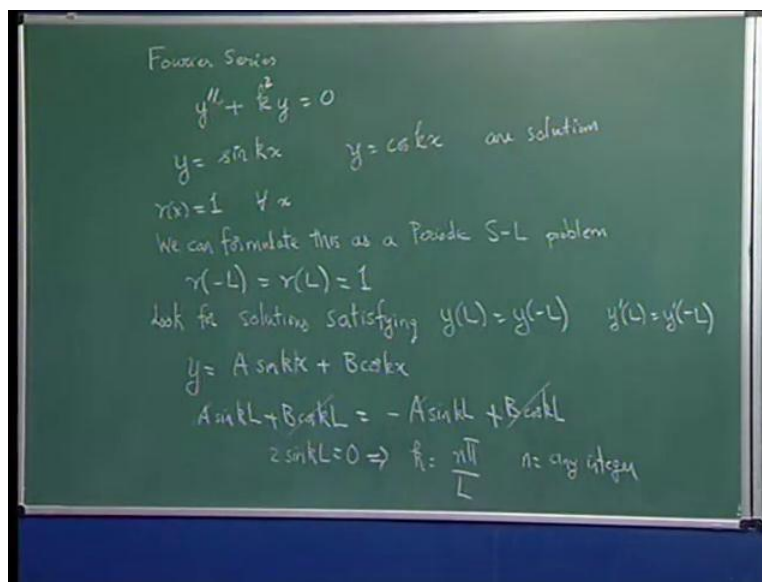 Fourier Series
y'' + k² y = 0
y = sin kx y = cos kx are solution
r(x) = 1 ∀ x
We can formulate this as a Periodic S-L problem
r(-L) = r(L) = 1
Look for solutions satisfying y(L) = y(-L) y'(L) = y'(-L)
y = A sin kx + B cos kx
A sin kL + B cos kL = - A sin kL + B cos kL
2 sin kL = 0 ⇒ k = nπ/L n = any integer